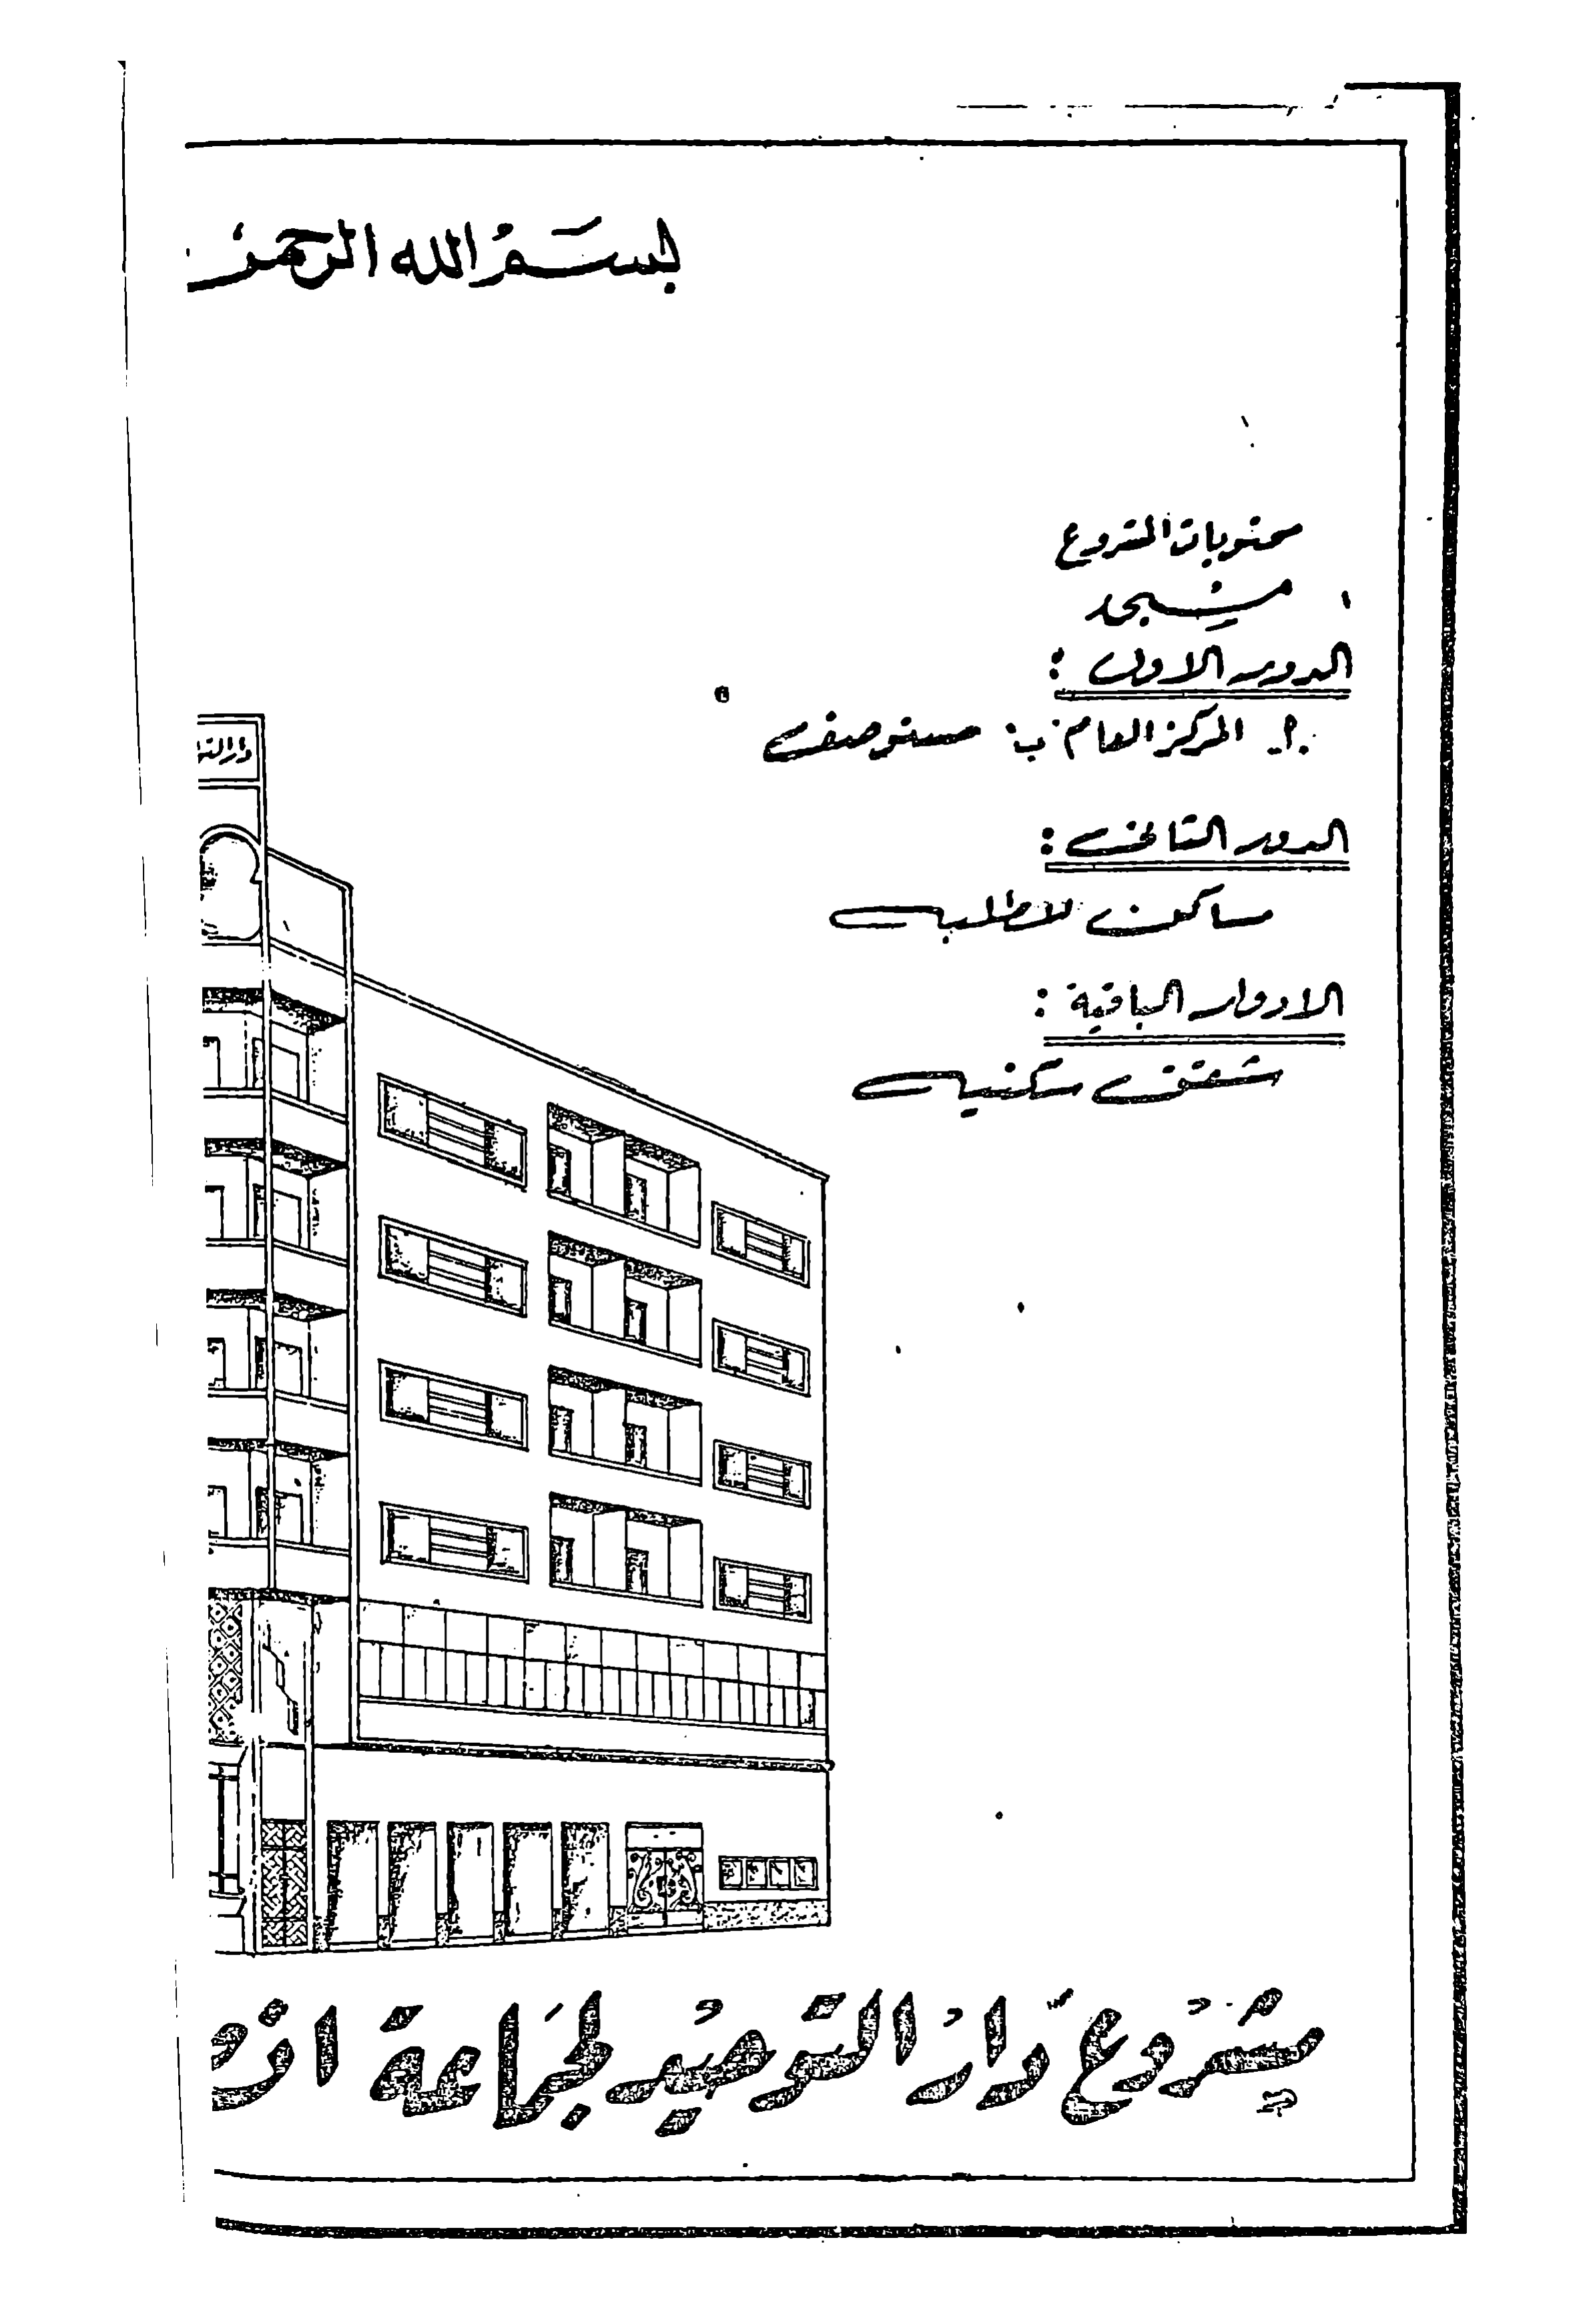 بسم الله الرحمن
محتويات المشروع
مسجد
الدور الاول :
أ. المركز العام ب. مستوصف
الدور الثانى :
مساكن للطلبه
الادوار الباقية :
شقق سكنيه
دار الت
مشروع دار التوحيد لجماعة انص